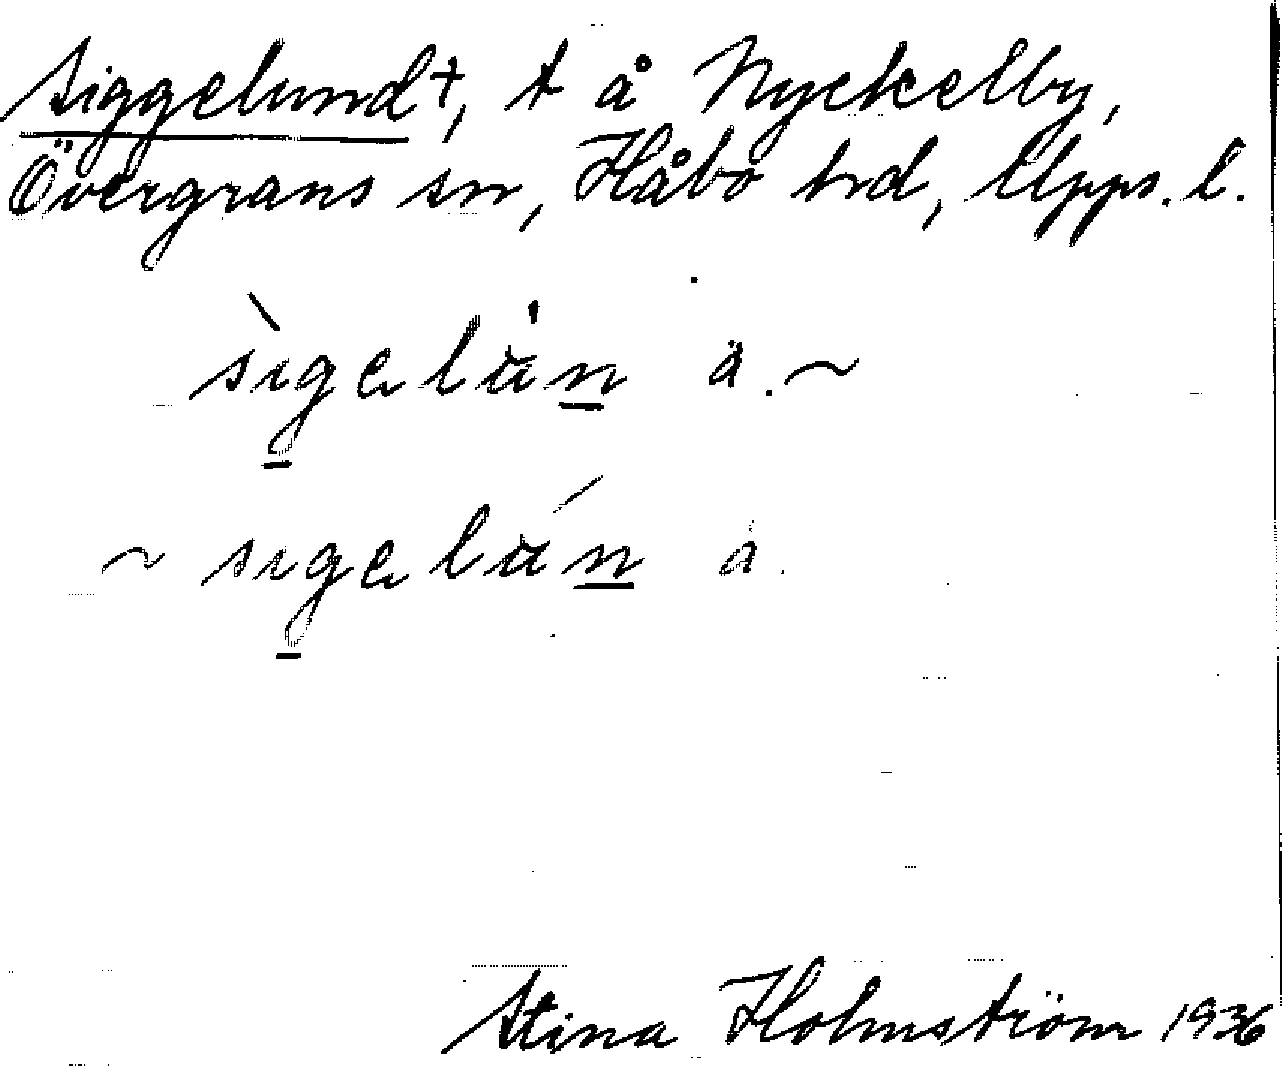 Siggelund†, t å Nyckelby,
Övergrans sn, Håbo hd, Upps. l.
sìgelu̇n ä. ~
~ sigelún ä.
Stina Holmström 1936